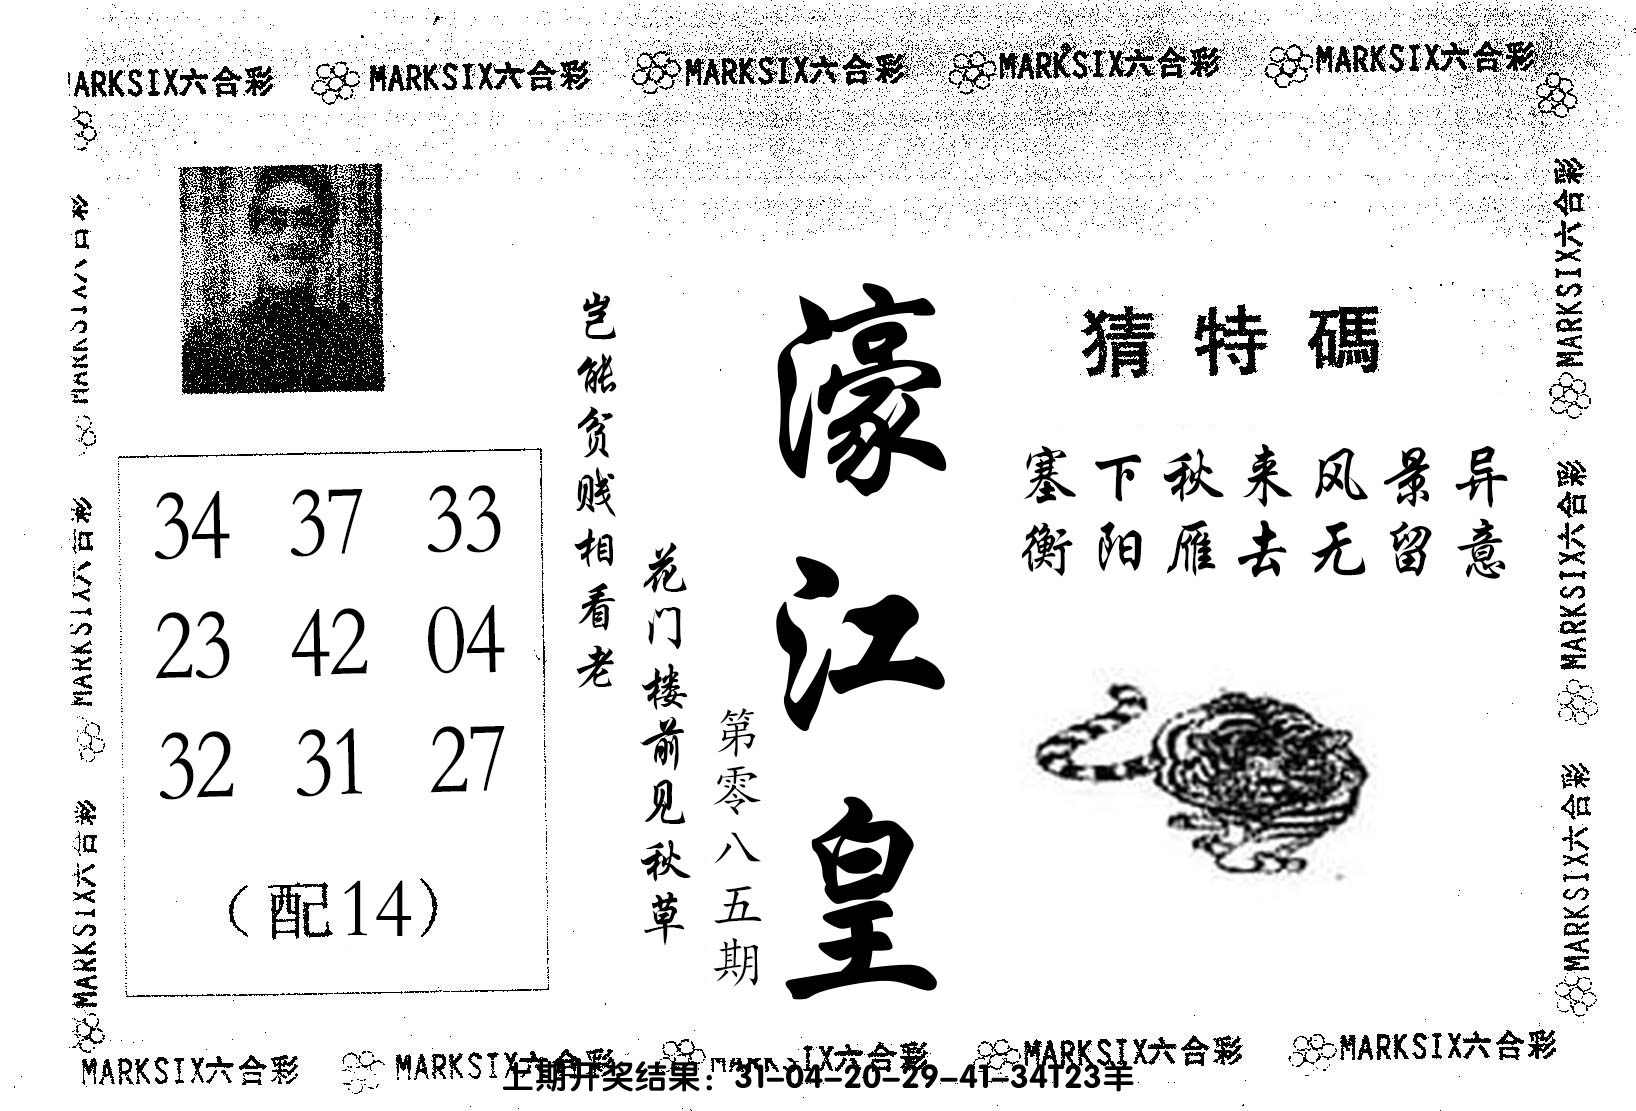 MARKSIX六合彩 MARKSIX六合彩 MARKSIX六合彩 MARKSIX六合彩 MARKSIX六合彩
MARKSIX六合彩
MARKSIX六合彩
MARKSIX六合彩
MARKSIX六合彩
MARKSIX六合彩
MARKSIX六合彩
34 37 33
23 42 04
32 31 27
(配14)
岂能贫贱相看老
花门楼前见秋草
第零八五期
濠江皇
猜特碼
塞下秋来风景异
衡阳雁去无留意
MARKSIX六合彩 MARKSIX六合彩 MARKSIX六合彩 MARKSIX六合彩 MARKSIX六合彩
上期开奖结果：31-04-20-29-41-34T23羊